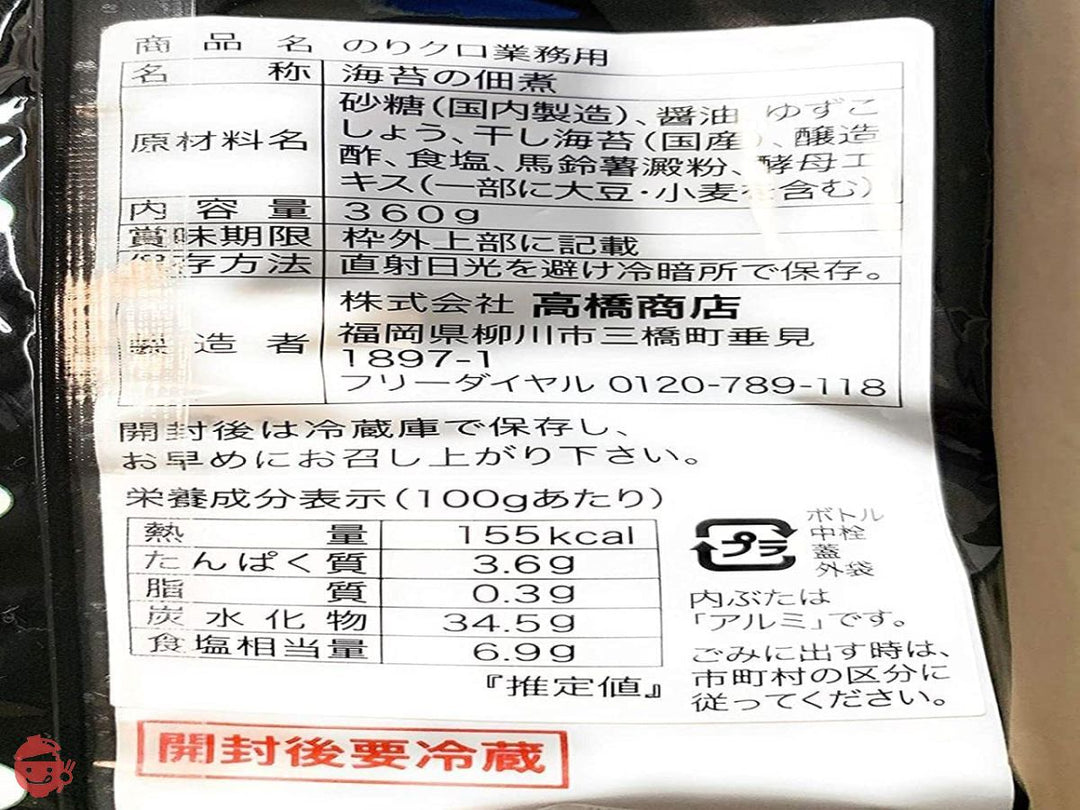 商品名 のりクロ業務用
名称 海苔の佃煮
原材料名 砂糖(国内製造)、醤油 ゆずこ
しょう、干し海苔(国産)、醸造
酢、食塩、馬鈴薯澱粉、酵母エ
キス(一部に大豆・小麦を含む)
内容量 360g
賞味期限 枠外上部に記載
保存方法 直射日光を避け冷暗所で保存。
製造者 株式会社 高橋商店
福岡県柳川市三橋町垂見
1897-1
フリーダイヤル 0120-789-118
開封後は冷蔵庫で保存し、
お早めにお召し上がり下さい。
栄養成分表示(100gあたり)
熱量 155kcal
たんぱく質 3.6g
脂質 0.3g
炭水化物 34.5g
食塩相当量 6.9g
『推定値』
プラ
ボトル
中栓
蓋
外袋
内ぶたは
「アルミ」です。
ごみに出す時は、
市町村の区分に
従ってください。
開封後要冷蔵